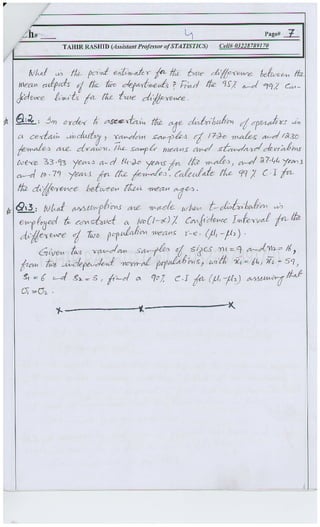 Ch# 4 Page# 7
TAHIR RASHID (Assistant Professor of STATISTICS) Cell# 03228789170
What is the point estimator for the true difference between the
mean outputs of the two departments? Find the 95% and 99% Con-
fidence limits for the true difference.
Q.2: In order to ascertain the age distribution of operatives in
a certain industry, random samples of 1720 males and 1230
females are drawn. The sample means and standard deviations
were 33.93 years and 14.20 years for the males, and 27.44 years
and 10.79 years for the females. Calculate the 99% C.I for
the difference between their mean ages.
Q.3: What assumptions are made when t-distribution is
employed to construct a 100(1-α)% Confidence Interval for the
difference of two population means i.e. (μ1-μ2).
Given two random samples of sizes n1=9 and n2=16,
from two independent normal populations, with x̄1=64, x̄2=59,
S1=6 and S2=5, find a 90% C.I for (μ1-μ2) assuming that
σ1=σ2.